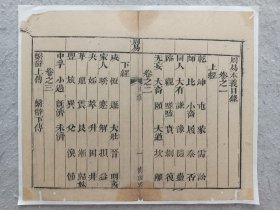 周易本義目錄
卷之一
上經
乾 坤 屯 蒙 需 訟
師 比 小畜 履 泰 否
同人 大有 謙 豫 隨 蠱
臨 觀 噬嗑 賁 剝 復
无妄 大畜 頤 大過 坎 離
卷之二
周易
下經
咸 恆 遯 大壯 晉 明夷
家人 睽 蹇 解 損 益
夬 姤 萃 升 困 井
革 鼎 震 艮 漸 歸妹
豐 旅 巽 兌 渙 節
中孚 小過 既濟 未濟
卷之三
繫辭上傳 繫辭下傳